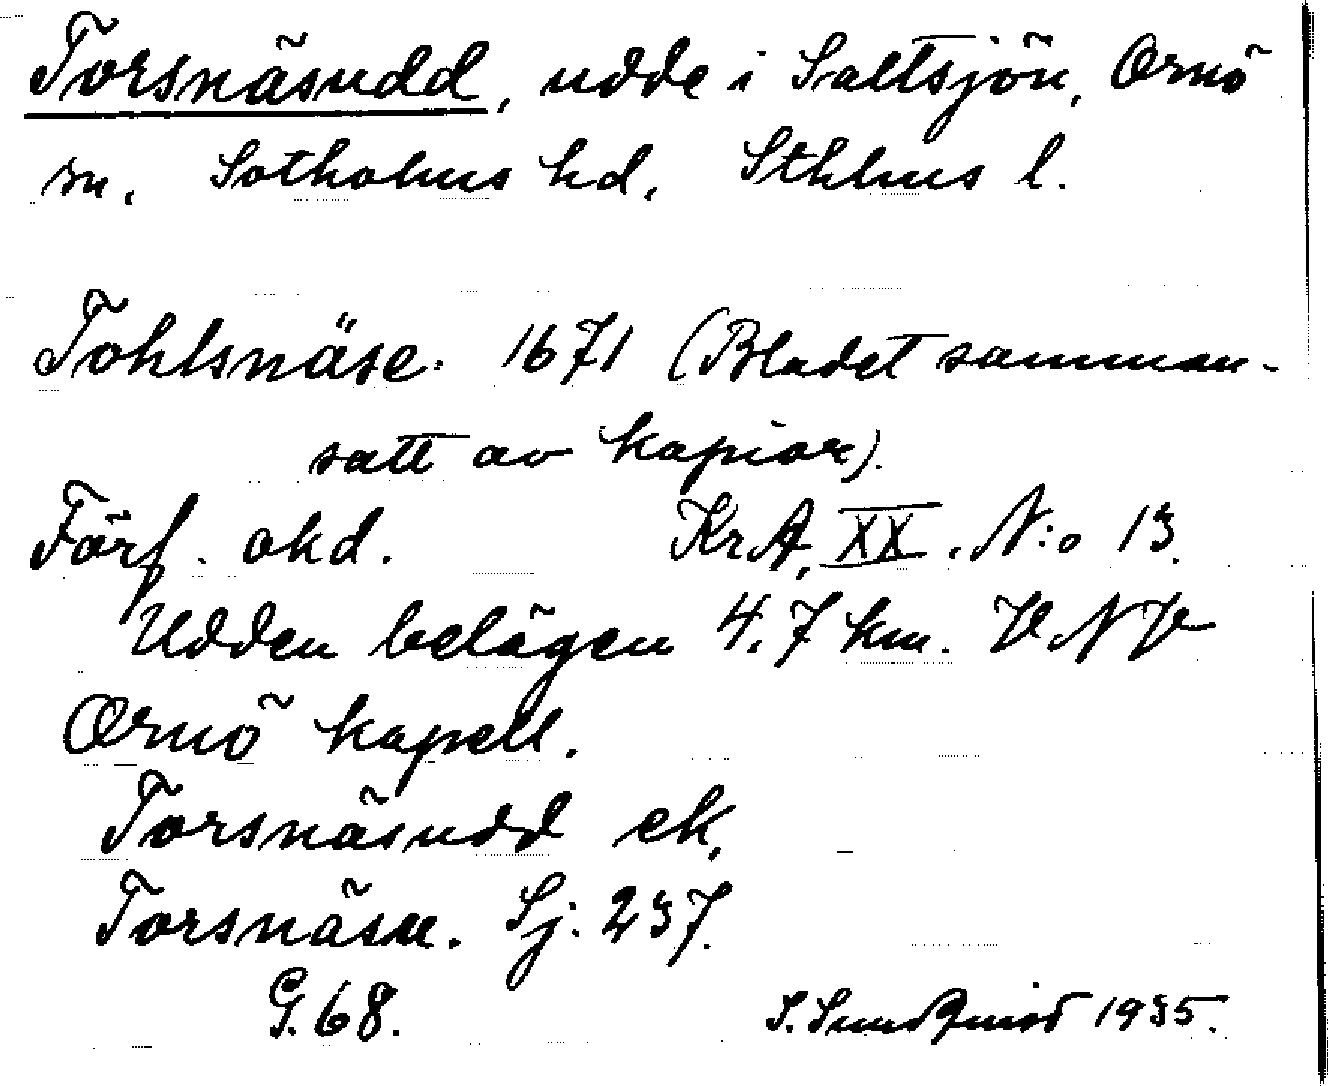 Torsnäsudd, udde i Saltsjön, Ornö
sn. Sotholms hd. Sthlms l.
Tohlsnäse. 1671 (Bladet samman-
satt av kapior).
Förf. okd. KrA, XX. N:o 13.
Udden belägen 4.7 km. VNV
Ornö kapell.
Torsnäsudd ek.
Torsnäsu. Sj: 237.
G. 68. S. Sundquist 1935.